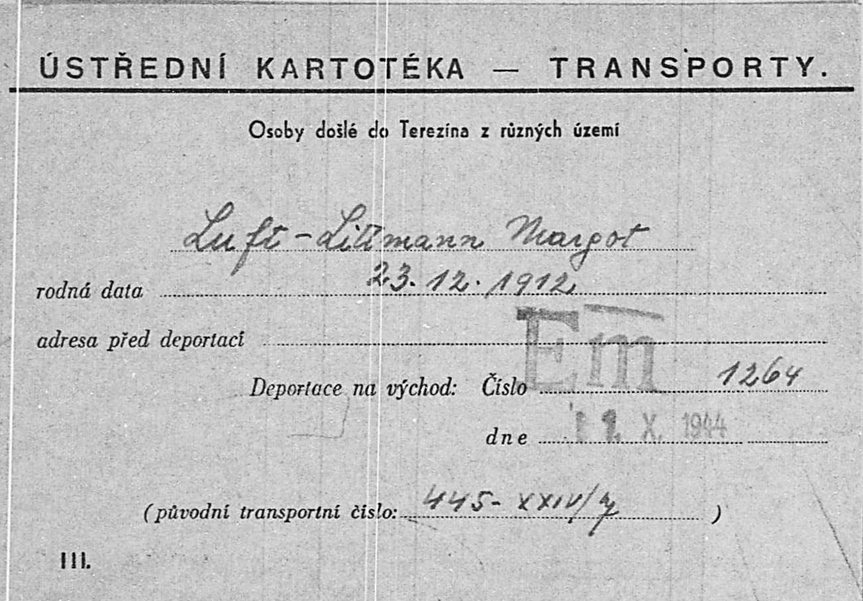 ÚSTŘEDNÍ KARTOTÉKA — TRANSPORTY.
Osoby došlé do Terezína z různých území
Luft-Littmann Margot
rodná data 23.12.1912
adresa před deportací
Em
Deportace na východ: Číslo 1264
dne 1. X. 1944
(původní transportní číslo: 445-XXIV/7)
III.